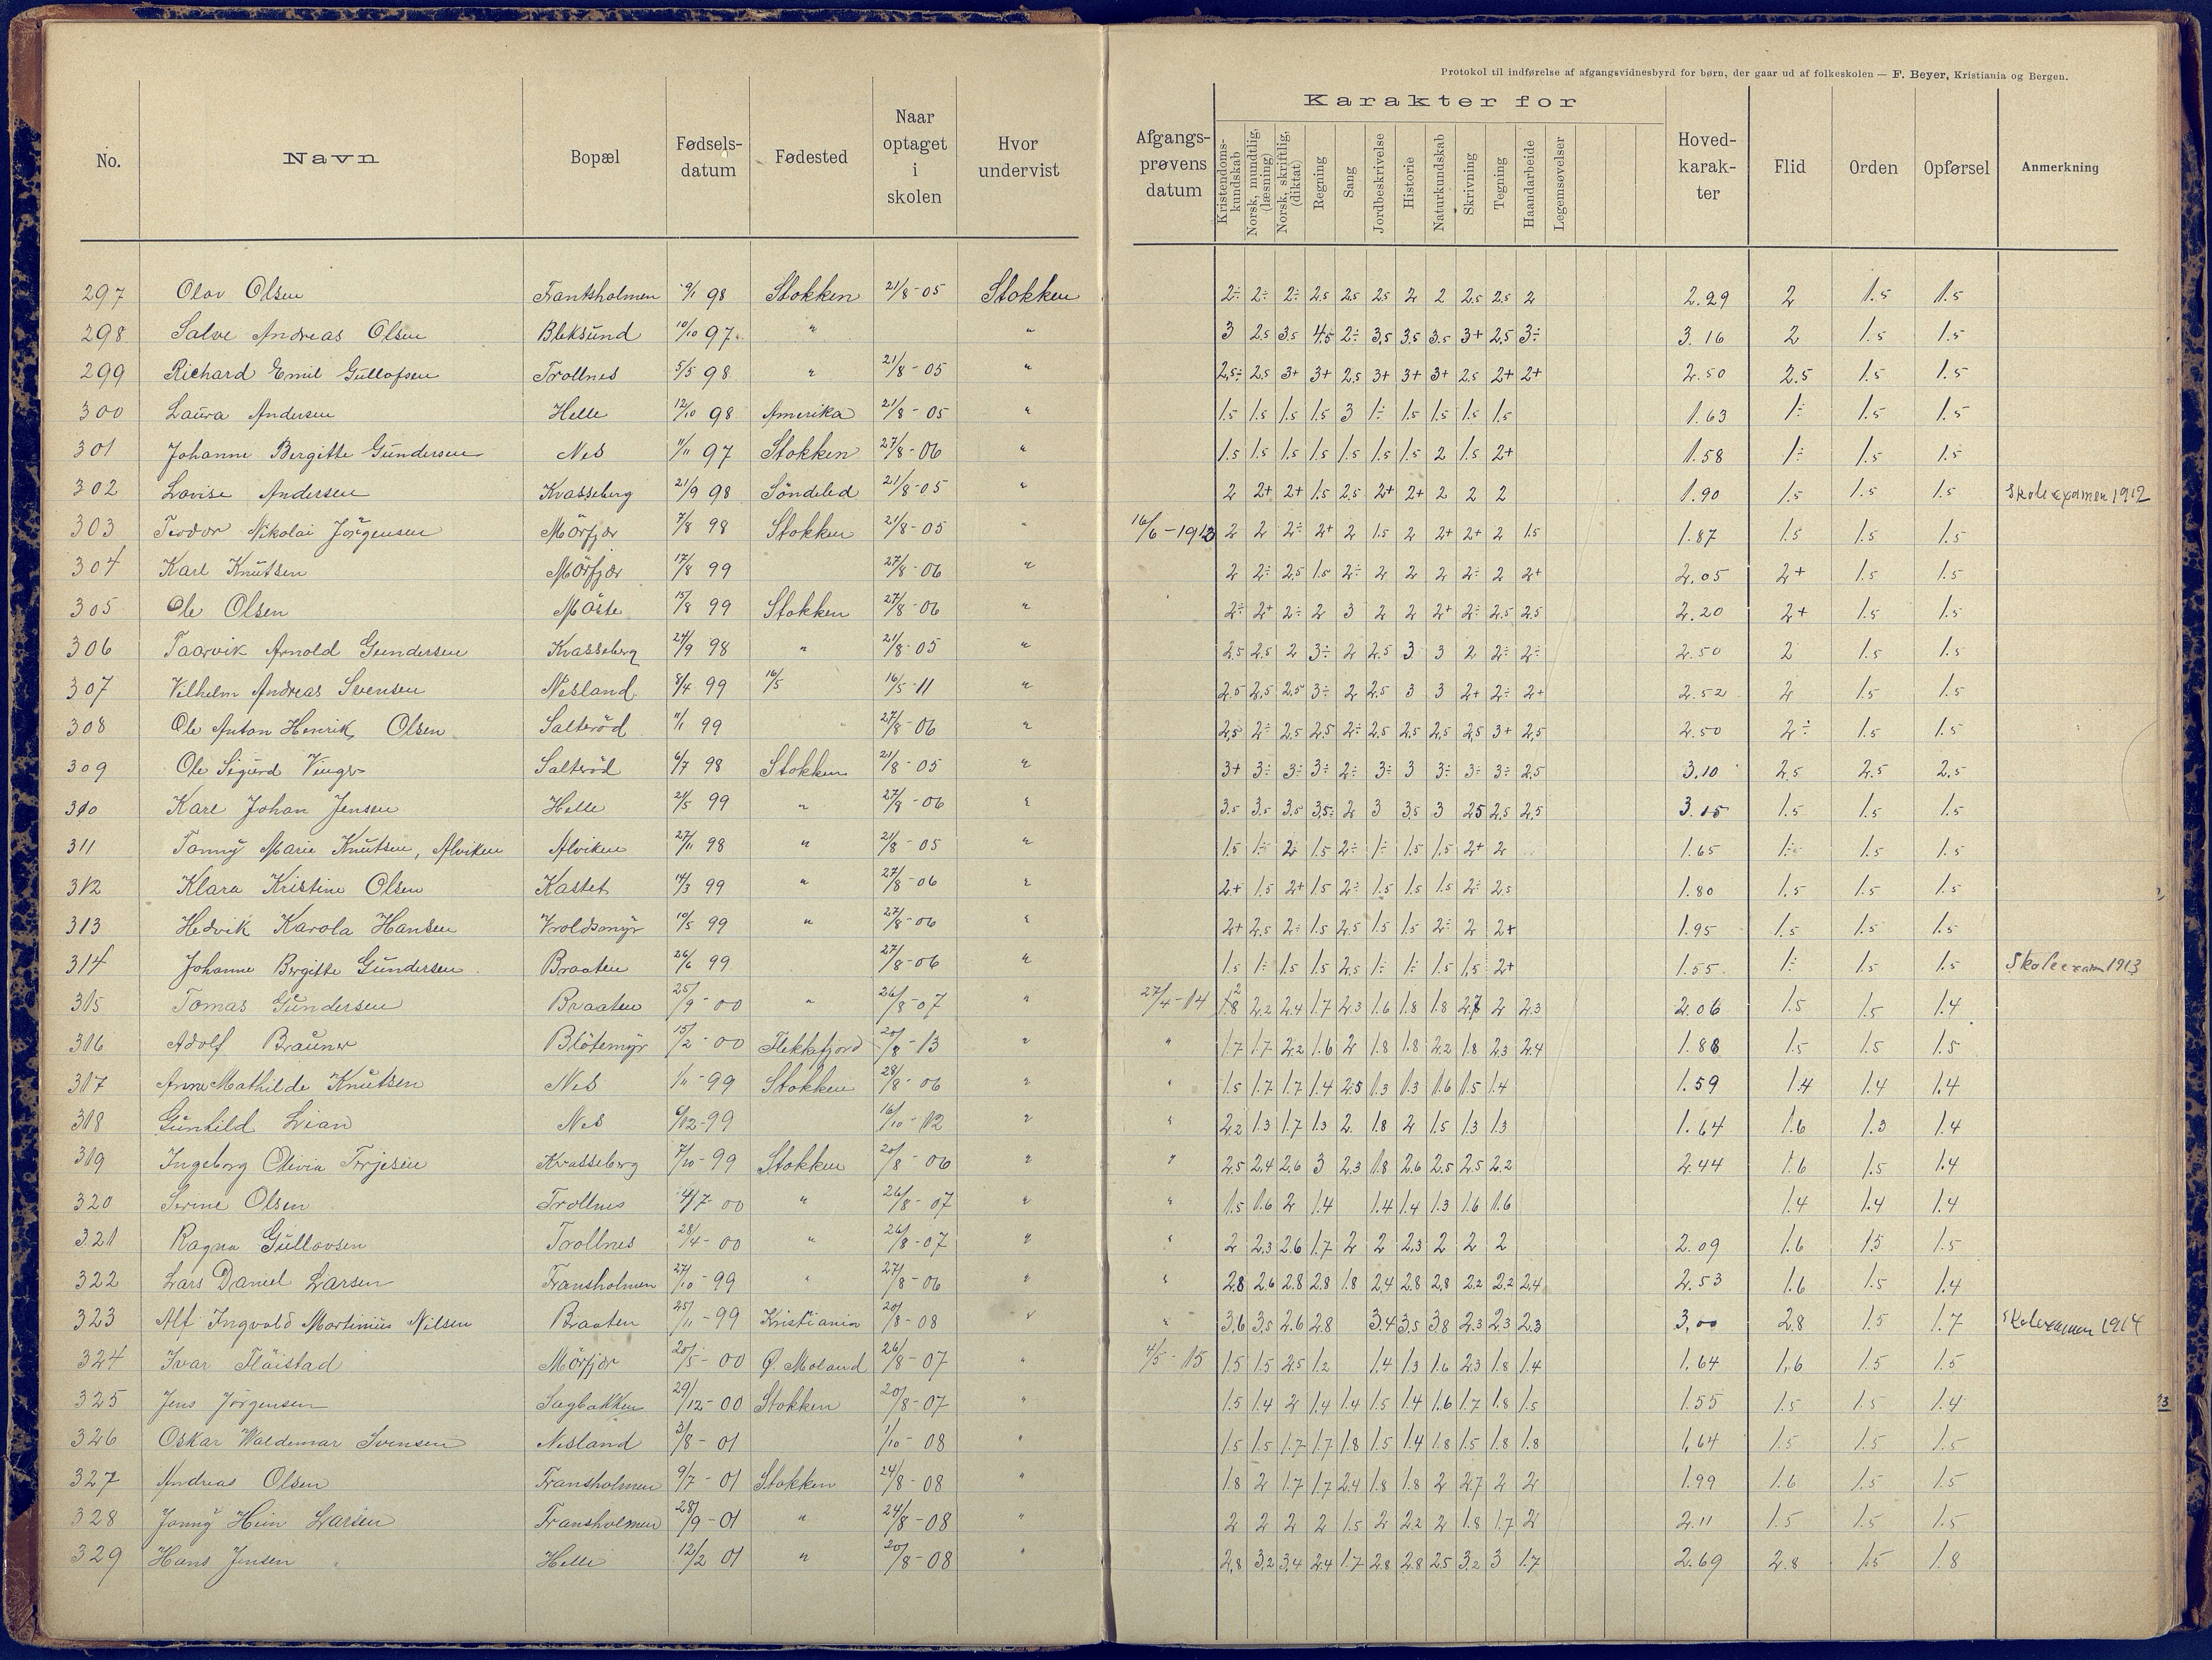 Protokol til indførelse af afgangsvidnesbyrd for børn, der gaar ud af folkeskolen — F. Beyer, Kristiania og Bergen.
No. Navn Bopæl Fødsels-datum Fødested Naar optaget i skolen Hvor undervist Afgangs-prøvens datum Karakter for Kristendoms-kundskab Norsk, mundtlig, (læsning) Norsk, skriftlig, (diktat) Regning Sang Jordbeskrivelse Historie Naturkundskab Skrivning Tegning Haandarbeide Legemsøvelser Hoved-karak-ter Flid Orden Opførsel Anmerkning
297 Olav Olsen Frantsholmen 9/1 98 Stokken 21/8-05 Stokken 2÷ 2÷ 2÷ 2.5 2.5 2.5 2 2 2.5 2.5 2 2.29 2 1.5 1.5
298 Salve Andreas Olsen Bleksund 10/10 97 " " 3 2.5 3.5 4.5 2÷ 3.5 3.5 3.5 3+ 2.5 3÷ 3.16 2 1.5 1.5
299 Richard Emil Gullofsen Trollnes 5/5 98 " 21/8-05 " 2.5÷ 2.5 3+ 3+ 2.5 3+ 3+ 3+ 2.5 2+ 2+ 2.50 2.5 1.5 1.5
300 Laura Andersen Helle 12/10 98 Amerika 21/8-05 " 1.5 1.5 1.5 1.5 3 1÷ 1.5 1.5 1.5 1.5 1.63 1÷ 1.5 1.5
301 Johanne Bergitte Gundersen Nes 11/11 97 Stokken 27/8-06 " 1.5 1.5 1.5 1.5 1.5 1.5 1.5 2 1.5 2+ 1.58 1÷ 1.5 1.5
302 Lovise Andersen Kvasseberg 21/9 98 Søndeled 21/8-05 2 2+ 2+ 1.5 2.5 2+ 2+ 2 2 2 1.90 1.5 1.5 1.5 Skoleexamen 1912
303 Teodor Nikolai Jörgensen Mörfjær 7/8 98 Stokken 21/8-05 " 16/6-1913 2 2 2÷ 2+ 2 1.5 2 2+ 2+ 2 1.5 1.87 1.5 1.5 1.5
304 Karl Knutsen Mörfjær 17/8 99 27/8-06 " 2 2÷ 2.5 1.5 2÷ 2 2 2 2÷ 2 2+ 2.05 2+ 1.5 1.5
305 Ole Olsen 15/8 99 Stokken 27/8-06 " 2÷ 2+ 2÷ 2 3 2 2 2+ 2÷ 2.5 2.5 2.20 2+ 1.5 1.5
306 Taarvik Arnold Gundersen Kvasseberg 24/9 98 " 21/8-05 " 2.5 2.5 2 3÷ 2 2.5 3 3 2 2÷ 2÷ 2.50 2 1.5 1.5
307 Vilhelm Andreas Svensen Nesland 8/4 99 16/5 16/5-11 " 2.5 2.5 2.5 3÷ 2 2.5 3 3 2+ 2÷ 2+ 2.52 2 1.5 1.5
308 Ole Anton Henrik Olsen Salteröd 11/1 99 27/8-06 " 2.5 2÷ 2.5 2.5 2÷ 2.5 2.5 2.5 2.5 3+ 2.5 2.50 2÷ 1.5 1.5
309 Ole Sigurd Salteröd 6/7 98 Stokken 21/8-05 " 3+ 3÷ 3÷ 3÷ 2÷ 3÷ 3 3÷ 3÷ 3÷ 2.5 3.10 2.5 2.5 2.5
310 Karl Johan Jensen Helle 21/5 99 " 27/8-06 " 3.5 3.5 3.5 3.5÷ 2 3 3.5 3 2.5 2.5 2.5 3.15 1.5 1.5 1.5
311 Tonny Marie Knutsen, Alviken Alviken 27/11 98 " 21/8-05 " 1.5 1÷ 2 1.5 2÷ 1÷ 1.5 1.5 2+ 2 1.65 1÷ 1.5 1.5
312 Klara Kristine Olsen Kastet 14/3 99 " 27/8-06 " 2+ 1.5 2+ 1.5 2÷ 1.5 1.5 1.5 2÷ 2.5 1.80 1.5 1.5 1.5
313 Hedvik Karola Hansen Vroldsmyr 10/5 99 " 27/8-06 " 2+ 2.5 2÷ 1.5 2.5 1.5 1.5 2÷ 2 2+ 1.95 1.5 1.5 1.5
314 Johanne Bergitte Gundersen Braaten 26/6 99 27/8-06 " 1.5 1÷ 1.5 1.5 2.5 1÷ 1÷ 1.5 1.5 2+ 1.55 1÷ 1.5 1.5 Skoleexam 1913
315 Tomas Gundersen Braaten 25/9-00 " 26/8-07 " 27/4-14 2.2 2.4 1.7 2.3 1.6 1.8 1.8 2.7 2 2.3 2.06 1.5 1.5 1.4
316 Adolf Brauner Blötemyr 15/2-00 Flekkefjord 20/8-13 " " 1.7 1.7 2.2 1.6 2 1.8 1.8 2.2 1.8 2.3 2.4 1.88 1.5 1.5 1.5
317 Anna Mathilde Knutsen Nes 1/11-99 Stokken 28/8-06 " " 1.5 1.7 1.7 1.4 2.5 1.3 1.3 1.6 1.5 1.4 1.59 1.4 1.4 1.4
318 Gunhild Lian Nes 6/12-99 16/10-12 " " 2.2 1.3 1.7 1.3 2. 1.8 2 1.5 1.3 1.3 1.64 1.6 1.3 1.4
319 Ingeborg Olivia Terjesen Kvasseberg 7/10-99 Stokken 20/8-06 " " 2.5 2.4 2.6 3 2.3 1.8 2.6 2.5 2.5 2.2 2.44 1.6 1.5 1.4
320 Serine Olsen Trollnes 4/7-00 " 26/8-07 " " 1.5 1.6 2 1.4 1.4 1.4 1.3 1.6 1.6 1.4 1.4 1.4
321 Ragna Gullovsen Trollnes 28/4-00 " 26/8-07 " " 2 2.3 2.6 1.7 2 2 2.3 2 2 2 2.09 1.6 1.5 1.5
322 Lars Daniel Larsen Fransholmen 27/10-99 " 27/8-06 " " 2.8 2.6 2.8 2.8 1.8 2.4 2.8 2.8 2.2 2.2 2.4 2.53 1.6 1.5 1.4
323 Alf Ingvald Martinius Nilsen Braaten 25/11-99 Kristiania 20/8-08 " " 3.6 3.5 2.6 2.8 3.4 3.5 3.8 2.3 2.3 2.3 3,00 2.8 1.5 1.7 Skoleexamen 1914
324 Ivar Flöistad Mörfjær 20/5-00 Ø. Moland 26/8-07 " 4/5-15 1.5 1.5 2.5 1.2 1.4 1.3 1.6 2.3 1.8 1.4 1.64 1.6 1.5 1.5
325 Jens Jörgensen Sagbakken 29/12-00 Stokken 20/8-07 " 1.5 1.4 2 1.4 1.4 1.5 1.4 1.6 1.7 1.8 1.5 1.55 1.5 1.5 1.4
326 Oskar Waldemar Svensen Nesland 3/8-01 1/10-08 " 1.5 1.5 1.7 1.7 1.8 1.5 1.4 1.8 1.5 1.8 1.8 1,64 1.5 1.5 1.5
327 Andreas Olsen Fransholmen 9/7-01 Stokken 24/8-08 " 1.8 2 1.7 1.7 2.4 1.8 1.8 2 2.7 2 2 1.99 1.6 1.5 1.5
328 Jonny Hein Larsen Fransholmen 28/9-01 " 24/8-08 " 2 2 2 2 1.5 2 2.2 2 1.8 1.7 2 2.11 1.5 1.5 1.5
329 Hans Jensen Helle 12/2 01 " 20/8-08 " 2.8 3.2 3.4 2.4 1.7 2.8 2.8 2.5 3.2 3 1.7 2.69 2.8 1.5 1.8